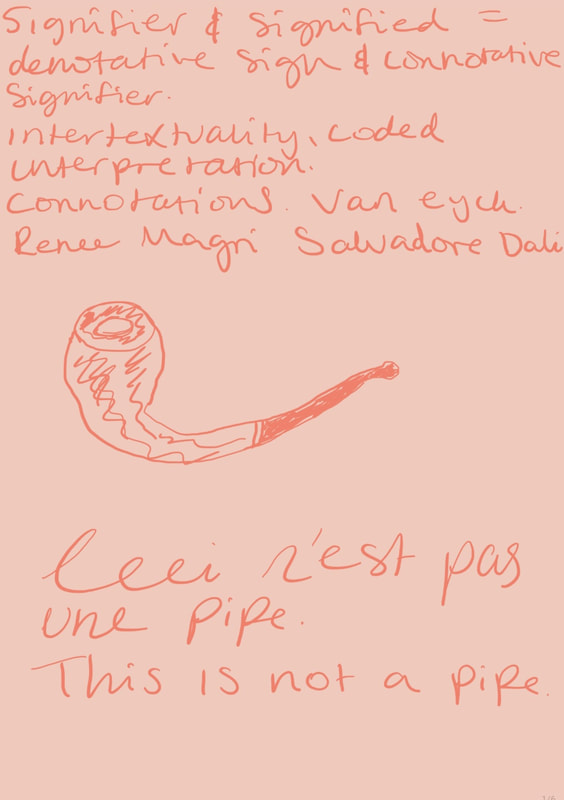 Signifier & Signified =
denotative sign & connotative
Signifier.
Intertextuality, coded
interpretation.
Connotations. Van eyck.
Renee Magri Salvadore Dali
Ceci n'est pas
une pipe.
This is not a pipe.
1/6